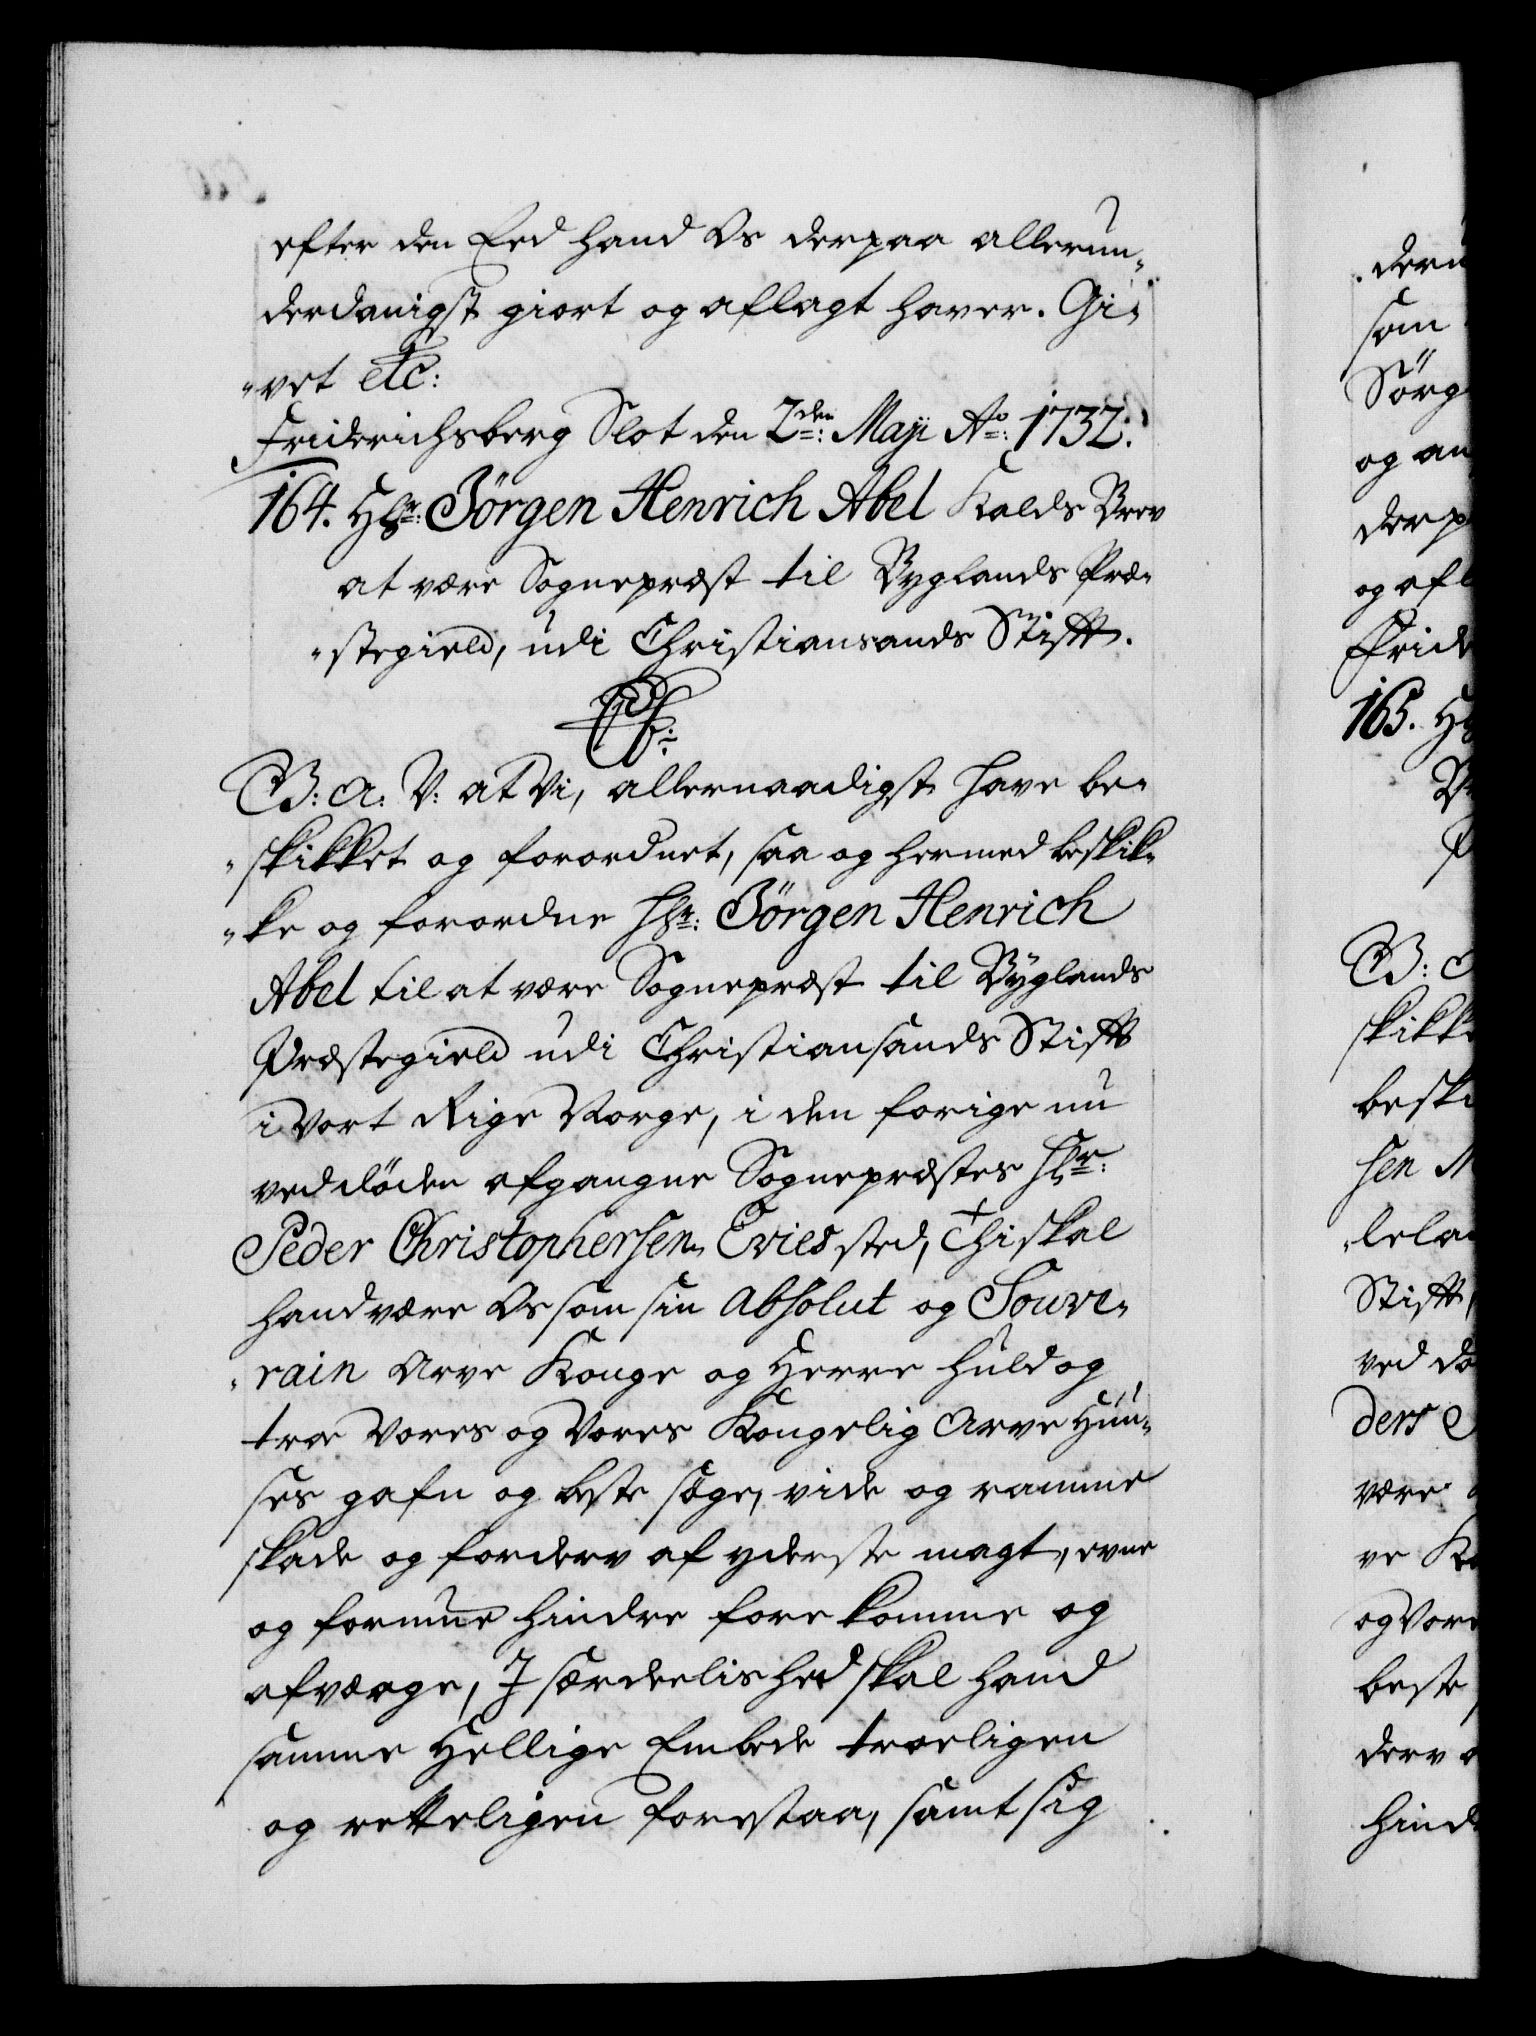 efter den Eed hand Os derpaa allerun-
derdanigst giort og aflagt haver. Gi-
-vet etc:
Friderichsberg Slot den 2den: Maji Ao: 1732.
164. Hr: Jörgen Henrich Abel Kalds Brev
at være Sognepræst til Byglands Præ-
-stegield, udi Christiansands Stift.
C6:
G: A: V: at Vi, allernaadigst have be-
-skikket og forordnet, saa og hermed beskik-
-ke og forordne Hr: Jörgen Henrich
Abel til at være Sognepræst til Byglands
Præstegield udi Christiansands Stift
i Vort Rige Norge, i den forige nu
ved döden afgangne Sognepræstes Hr:
Peder Christophersen Evies sted, Thi skal
hand være Os som sin Absolut og Souve-
-rain Arve Konge og Herre huld og
troe Vores og Vores Kongelig Arve Huu-
ses gafn og beste söge, vide og ramme
skade og forderv af yderste magt, evne
og formue hindre forekomme og
afværge, I særdeelished skal hand
samme Hellige Embede troeligen
og retteligen forestaa, samt sig
deru
som
Sörg
og an
derp
og afl
Fride
165. H
B
P
G: A
skikk
besk
sen M
-lela
Stift,
ved dö
ders S
være
ve K
og Vor
beste
derv a
hind